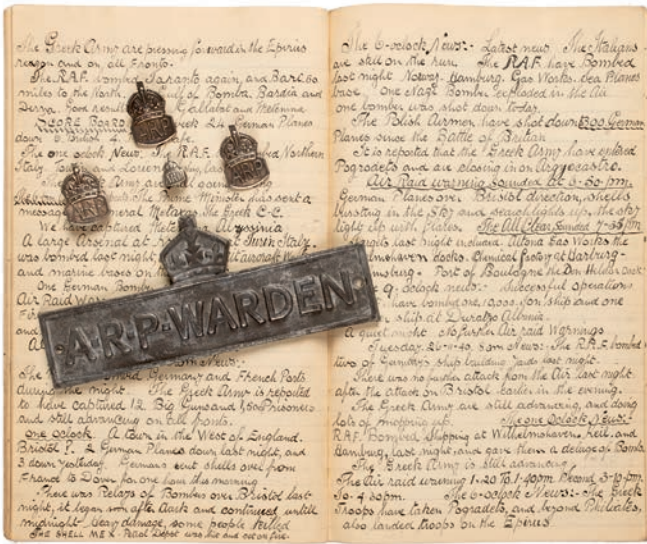 The Greek Army are pressing forward in the Epirius
region and on all fronts.
The R.A.F. bombed Taranto again, and Bari, 60
miles to the North. Gulf of Bomba. Bardia and
Derna. Good result Gallabat and Metemma
SCORE BOARD week 24 German Planes
down 6 British 4 safe.
The one oclock News. The R.A.F. Northern
Italy and Lourien last
The Army are all going
The Prime Minister has sent a
message General Metaxas The Greek C-C.
We have captured Abyssinia
A large Arsenal at Turin Italy.
was bombed last night,
and marine bases on
One German Bomb
Air Raid War
and
A.R.P
A.R.P
A.R.P
A·R·P·WARDEN
News:-
The Germany and French Ports
during the night. The Greek Army is reported
to have captured 12 Big Guns and prisoners
and still advancing on all fronts.
one oclock A Town in the West of England.
Bristol ?. 2 German Planes down last night, and
3 down yesterday. Germans sent shells over from
France to Dover for one hour this morning.
There was Relays of Bombers over Bristol last
night, it began soon after dark and continued untill
midnight. Heavy damage, some people killed
THE SHELL MEX - Petrol Depot was hit and set on fire.
The 6-oclock News:- Latest news. The Italians
are still on the run. The R.A.F. have Bombed
last night Norway. Hamburg. Gas Works. Sea Planes
base. one Nazi Bomber exploded in the Air
one bomber was shot down today.
The Polish Airmen have shot down German
Planes since the Battle of Britan
It is reported that the Greek Army have entered
Pogradets and are closing in on Argyrocastro.
Air Raid warning sounded at 6-30 pm.
German Planes over. Bristol direction, shells
bursting in the sky and searchlights up, the sky
light up with flares. The All Clear sounded 7-55 pm
Targets last night included Altona Gas Works the
Wilhelmshaven docks, Chemical factory at Harburg-
Port of Boulogne the Den-Helder dock
9 oclock news:- successful operations
have bombed one, 10,000. Ton ship and one
ship at Durazo Albania.
A quiet night. No further Air raid Warnings
Tuesday. 26-11-40. 8am News:- The R.A.F. bombed
two of Germanys ship building yards last night.
There was no further attack from the Air last night.
after the attack on Bristol earlier in the evening.
The Greek Army are still advancing, and doing
lots of mopping up. The one oclock News:-
R.A.F. Bombed Shipping at Wilhelmshaven, Keil, and
Hamburg, last night, and gave them a deluge of Bombs
The Greek Army is still advancing
The Air raid warning 1-20 To 1-40pm. Second 3-10 pm.
To 4-30pm. The 6-oclock News:- The Greek
Troops have taken Pogradets, and beyond
also landed troops on the Epirus.